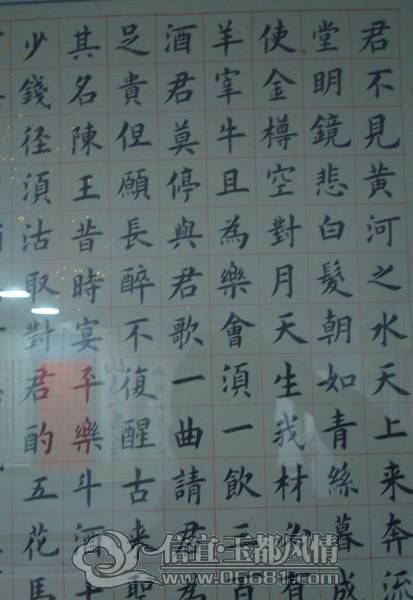 君不見黄河之水天上来奔流
堂明鏡悲白髮朝如青絲暮成
使金樽空對月天生我材必有
羊宰牛且為樂會湏一飲三百
酒君莫停與君歌一曲請君為
足貴但願長醉不復醒古来聖
其名陳王昔時宴平樂斗酒十
少錢径湏沽取對君酌五花馬
信宜·玉都风情
www.06681.com